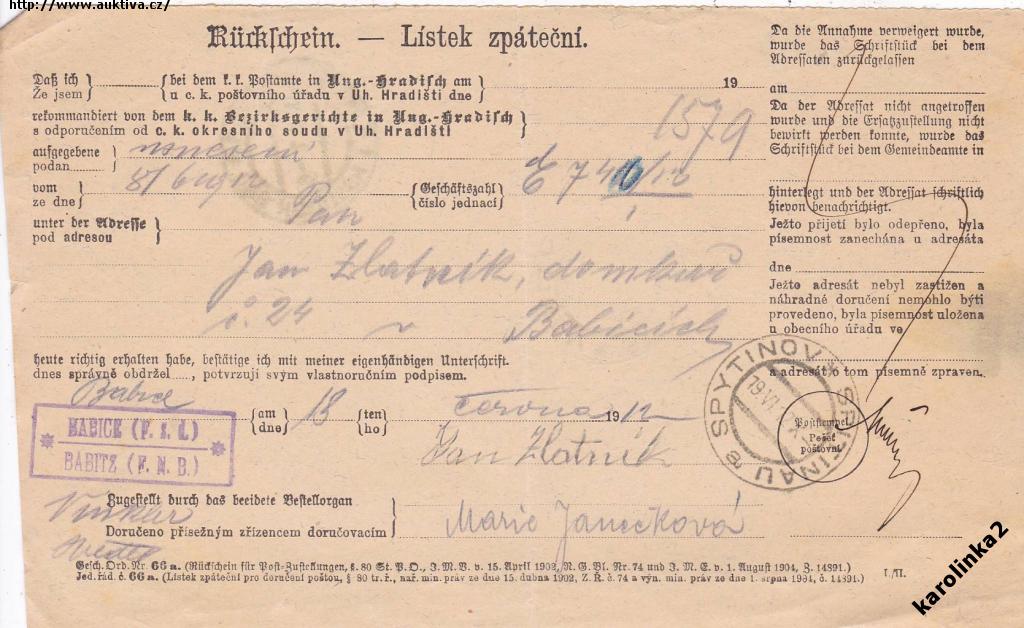 http://www.auktiva.cz/
Rückschein. — Lístek zpáteční.
Daß ich bei dem k. k. Postamte in Ung.-Hradisch am 19
Že jsem u c. k. poštovního úřadu v Uh. Hradišti dne
rekommandiert von dem k. k. Bezirksgerichte in Ung.-Hradisch
s odporučením od c. k. okresního soudu v Uh. Hradišti
1579
aufgegebene usnesení
podan
vom 8/6 Geschäftszahl E 746/12
ze dne číslo jednací
Pan
unter der Adresse
pod adresou
Jan Zlatník, domkař
č. 24 v Babicích
heute richtig erhalten habe, bestätige ich mit meiner eigenhändigen Unterschrift.
dnes správně obdržel, potvrzuji svým vlastnoručním podpisem.
Babice am 13 ten června 1912
dne ho
BABICE (F. s. l.)
BABITZ (F. N. B.)
Jan Zlatník
Zugestellt durch das beeidete Bestellorgan
Doručeno přísežným zřízencem doručovacím
Marie Janečková
Gesch. Ord. Nr. 66 a. (Rückschein für Post-Zustellungen, § 80 St. P. O., J. M. V. v. 15. April 1902, N. G. Bl. Nr. 74 und J. M. E. v. 1. August 1904, Z. 14891.)
Jed. řád. č. 66 a. (Lístek zpáteční pro doručení poštou, § 80 tr. ř., nař. min. práv ze dne 15. dubna 1902, Z. Ř. č. 74 a výn. min. práv ze dne 1. srpna 1904, č. 14891.)
I./II.
Da die Annahme verweigert wurde,
wurde das Schriftstück bei dem
Adressaten zurückgelassen
am
Da der Adressat nicht angetroffen
wurde und die Ersatzzustellung nicht
bewirkt werden konnte, wurde das
Schriftstück bei dem Gemeindeamte in
hinterlegt und der Adressat schriftlich
hievon benachrichtigt.
Ježto přijetí bylo odepřeno, byla
písemnost zanechána u adresáta
dne
Ježto adresát nebyl zastižen a
náhradné doručení nemohlo býti
provedeno, byla písemnost uložena
u obecního úřadu ve
a adresát o tom písemně zpraven.
SPYTINOV
SPITINAU
Poststempel
Pečeť
poštovní
karolinka2